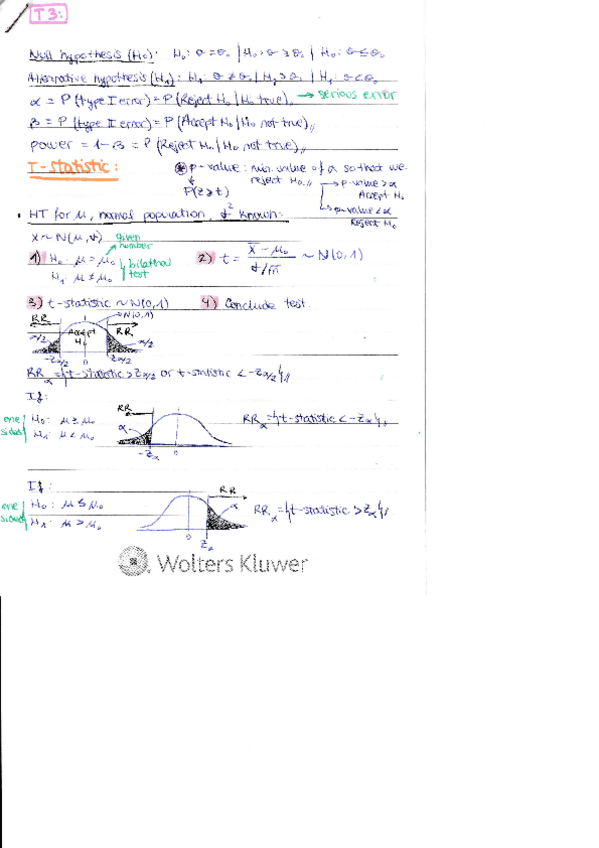 T3:
Null hypothesis (H₀): H₀: θ = θ₀ | H₀: θ ≥ θ₀ | H₀: θ ≤ θ₀
Alternative hypothesis (H₁): H₁: θ ≠ θ₀ | H₁ > θ₀ | H₁ θ < θ₀
α = P(type I error) = P(Reject H₀ | H₀ true) → serious error
β = P(type II error) = P(Accept H₀ | H₀ not true)
power = 1 - β = P(Reject H₀ | H₀ not true)
T-statistic: * p-value: min. value of α so that we
reject H₀ → p-value > α
P(Z ≥ t) Accept H₀
→ p-value < α
Reject H₀
• HT for μ, normal population, σ² known:
X ~ N(μ, σ) given
number
1) H₀: μ = μ₀ bilateral 2) t = (x̄ - μ₀) / (σ/√n) ~ N(0,1)
H₁: μ ≠ μ₀ test
3) t-statistic ~ N(0,1) 4) Conclude test.
RR N(0,1)
α/2 Accept H₀ RR α/2
-Zα/2 0 Zα/2
RRα = {t-statistic > Zα/2 or t-statistic < -Zα/2}
If:
one H₀: μ ≥ μ₀ RR RRα = {t-statistic < -Zα}
sided H₁: μ < μ₀ α
-Zα 0
If: RR
one H₀: μ ≤ μ₀ α RRα = {t-statistic > Zα}
sided H₁: μ > μ₀ 0
Zα
Wolters Kluwer